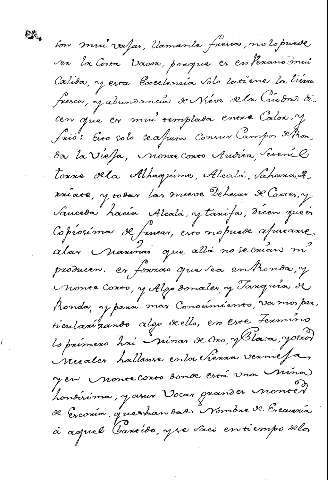 son mui vajas, llamanla fuerca, no lo puede
ser la Costa Vaxa, porque es en Verano mui
Calida, y esta Excelencia solo la tiene la tierra
fresca, y abundancia de Nieve de la Ciudad: di-
cen que es mui templada entre Calor, y
frio: Eso solo
da la Vieja, Monte Corto Audita, Setenil
torre de la Alhaquime, Alcalá, Sahara,
y todas las nueve Dehesas de Cortes, y
Sauceda hacia Alcalá, y tarifa, dicen que es
Copiosima de frutas, eso no puede aplicarse
a las Marinas que alli no se crian ni
producen. es forzoso que sea en Ronda, y
Monte Corto, y Algodonales y Serrania de
Ronda, y para mas Conocimiento vamos par-
ticularizando algo de ello, en este Termino
lo primero hai Minas de Oro, y Plata, y otros
Metales hallanse en la Sierra vermeja
y en Monte Corto donde está una Mina
hondisima, y a sus Vocas grandes Montes
de Escoria, que han dado Nombre de Escoria
á aquel Partido, y se sacó en tiempo de los